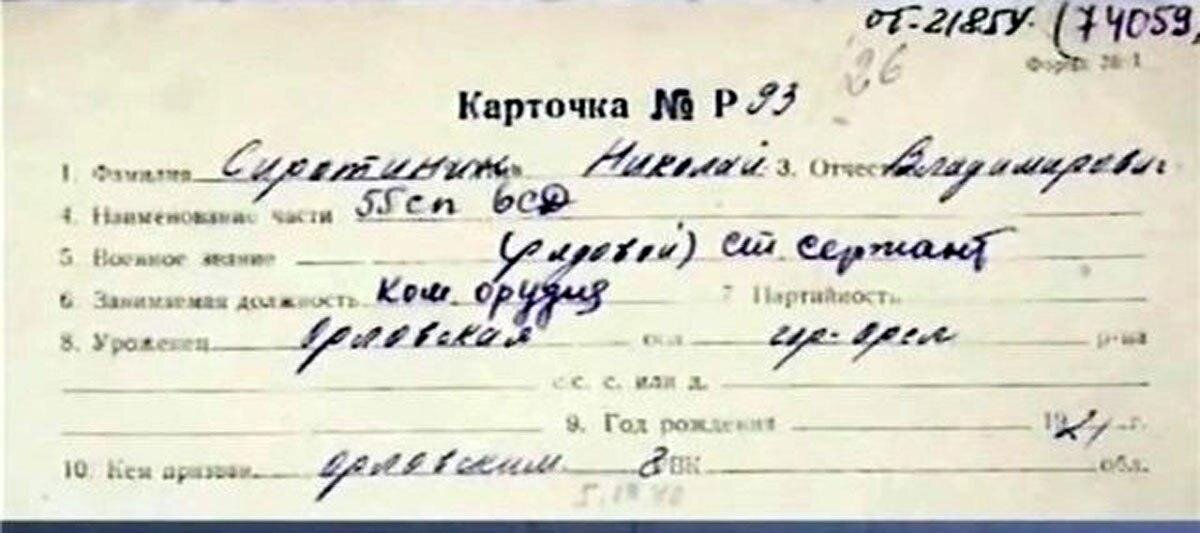 от-2185у. (74059,
26
Карточка № Р 93
1. Фамилия Сиротинин Николай 3. Отчество Владимирович
4. Наименование части 55 сп 6 СД
5. Военное звание (рядовой) ст сержант
6. Занимаемая должность Ком. орудия 7 Партийность
8. Уроженец Орловская обл гор. Орел р-на
с. с. или д.
9. Год рождения 1921 г.
10. Кем призван Орловским ВК обл.